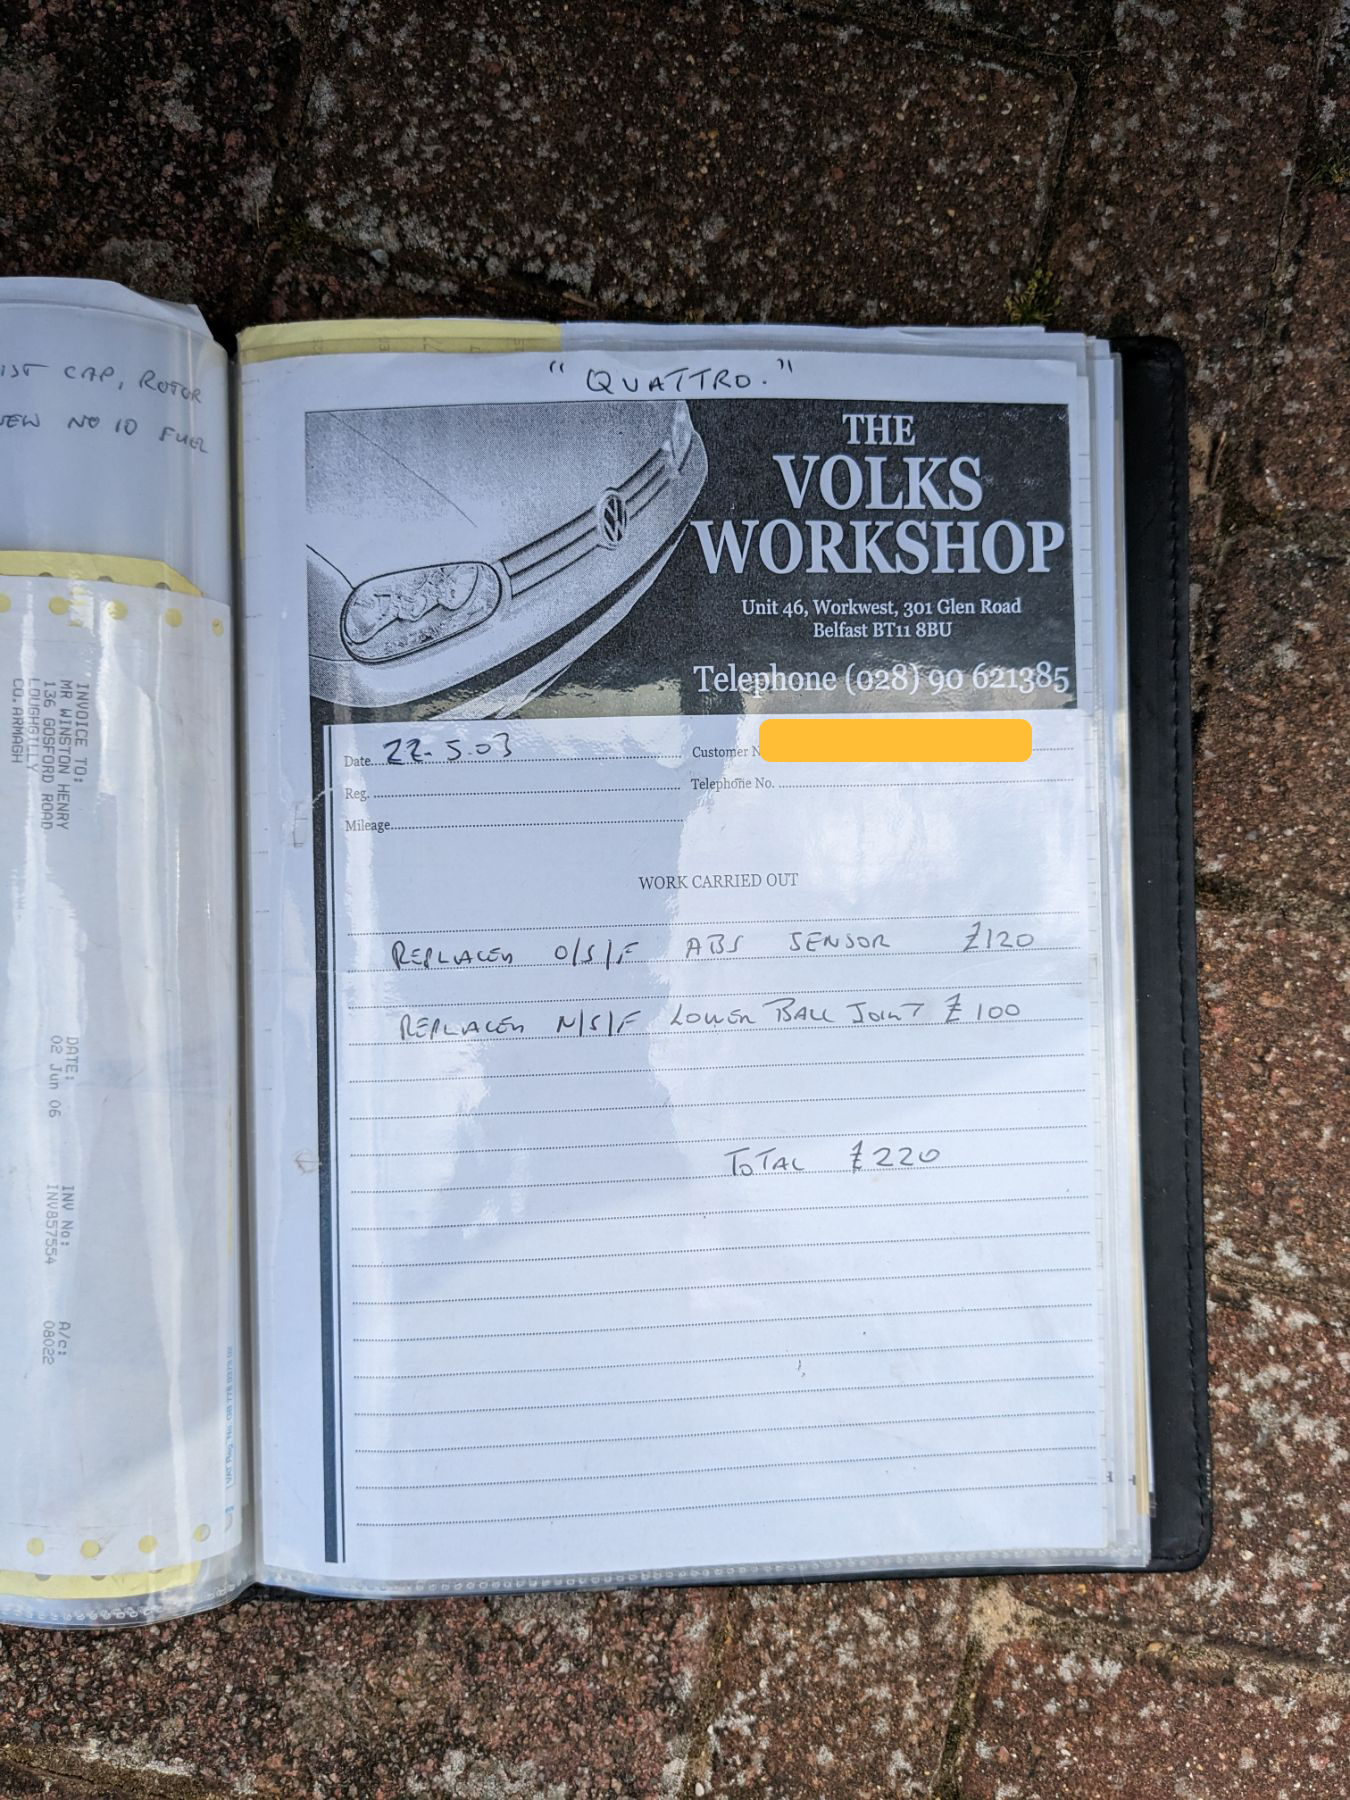 IST CAP, ROTOR
NEW NO 10 FUEL
INVOICE TO:
MR WINSTON HENRY
136 GOSFORD ROAD
LOUGHGILLY
CO. ARMAGH
DATE:
02 Jun 06
INV No:
INV857554
A/C:
08022
"QUATTRO."
THE
VOLKS
WORKSHOP
Unit 46, Workwest, 301 Glen Road
Belfast BT11 8BU
Telephone (028) 90 621385
Date 22.5.03
Customer N
Reg.
Telephone No.
Mileage
WORK CARRIED OUT
REPLACED O/S/F ABS SENSOR £120
REPLACED N/S/F LOWER BALL JOINT £100
TOTAL £220